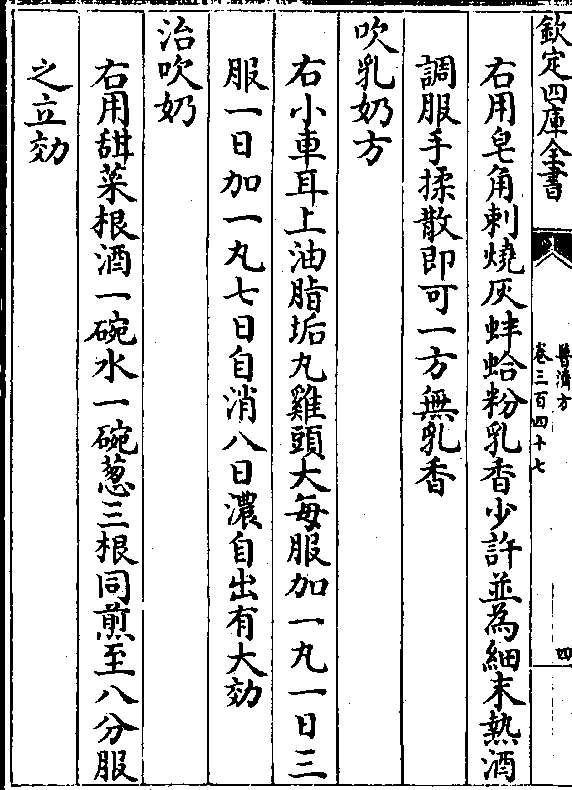 欽定四庫全書
普濟方
卷三百四十七
四
右用皂角刺燒灰蚌蛤粉乳香少許並為細末熱酒
調服手揉散即可一方無乳香
吹乳奶方
右小車耳上油脂垢丸雞頭大每服加一丸一日三
服一日加一丸七日自消八日濃自出有大効
治吹奶
右用甜菜根酒一碗水一碗葱三根同煎至八分服
之立効